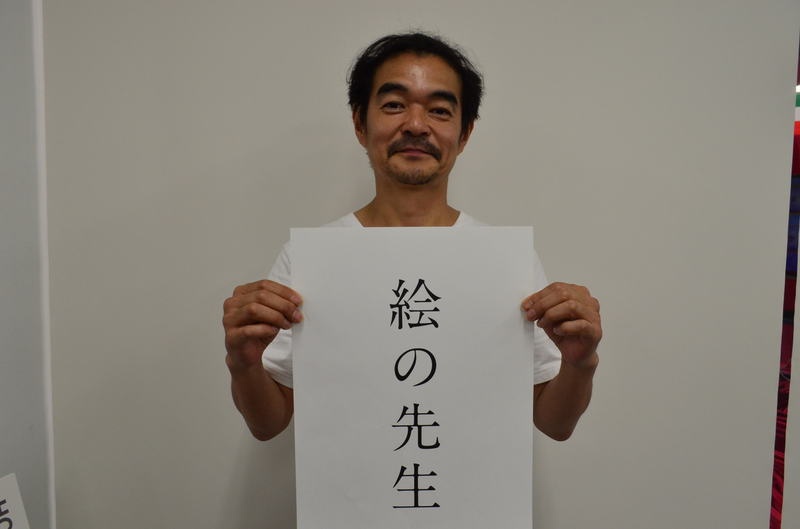 絵の先生